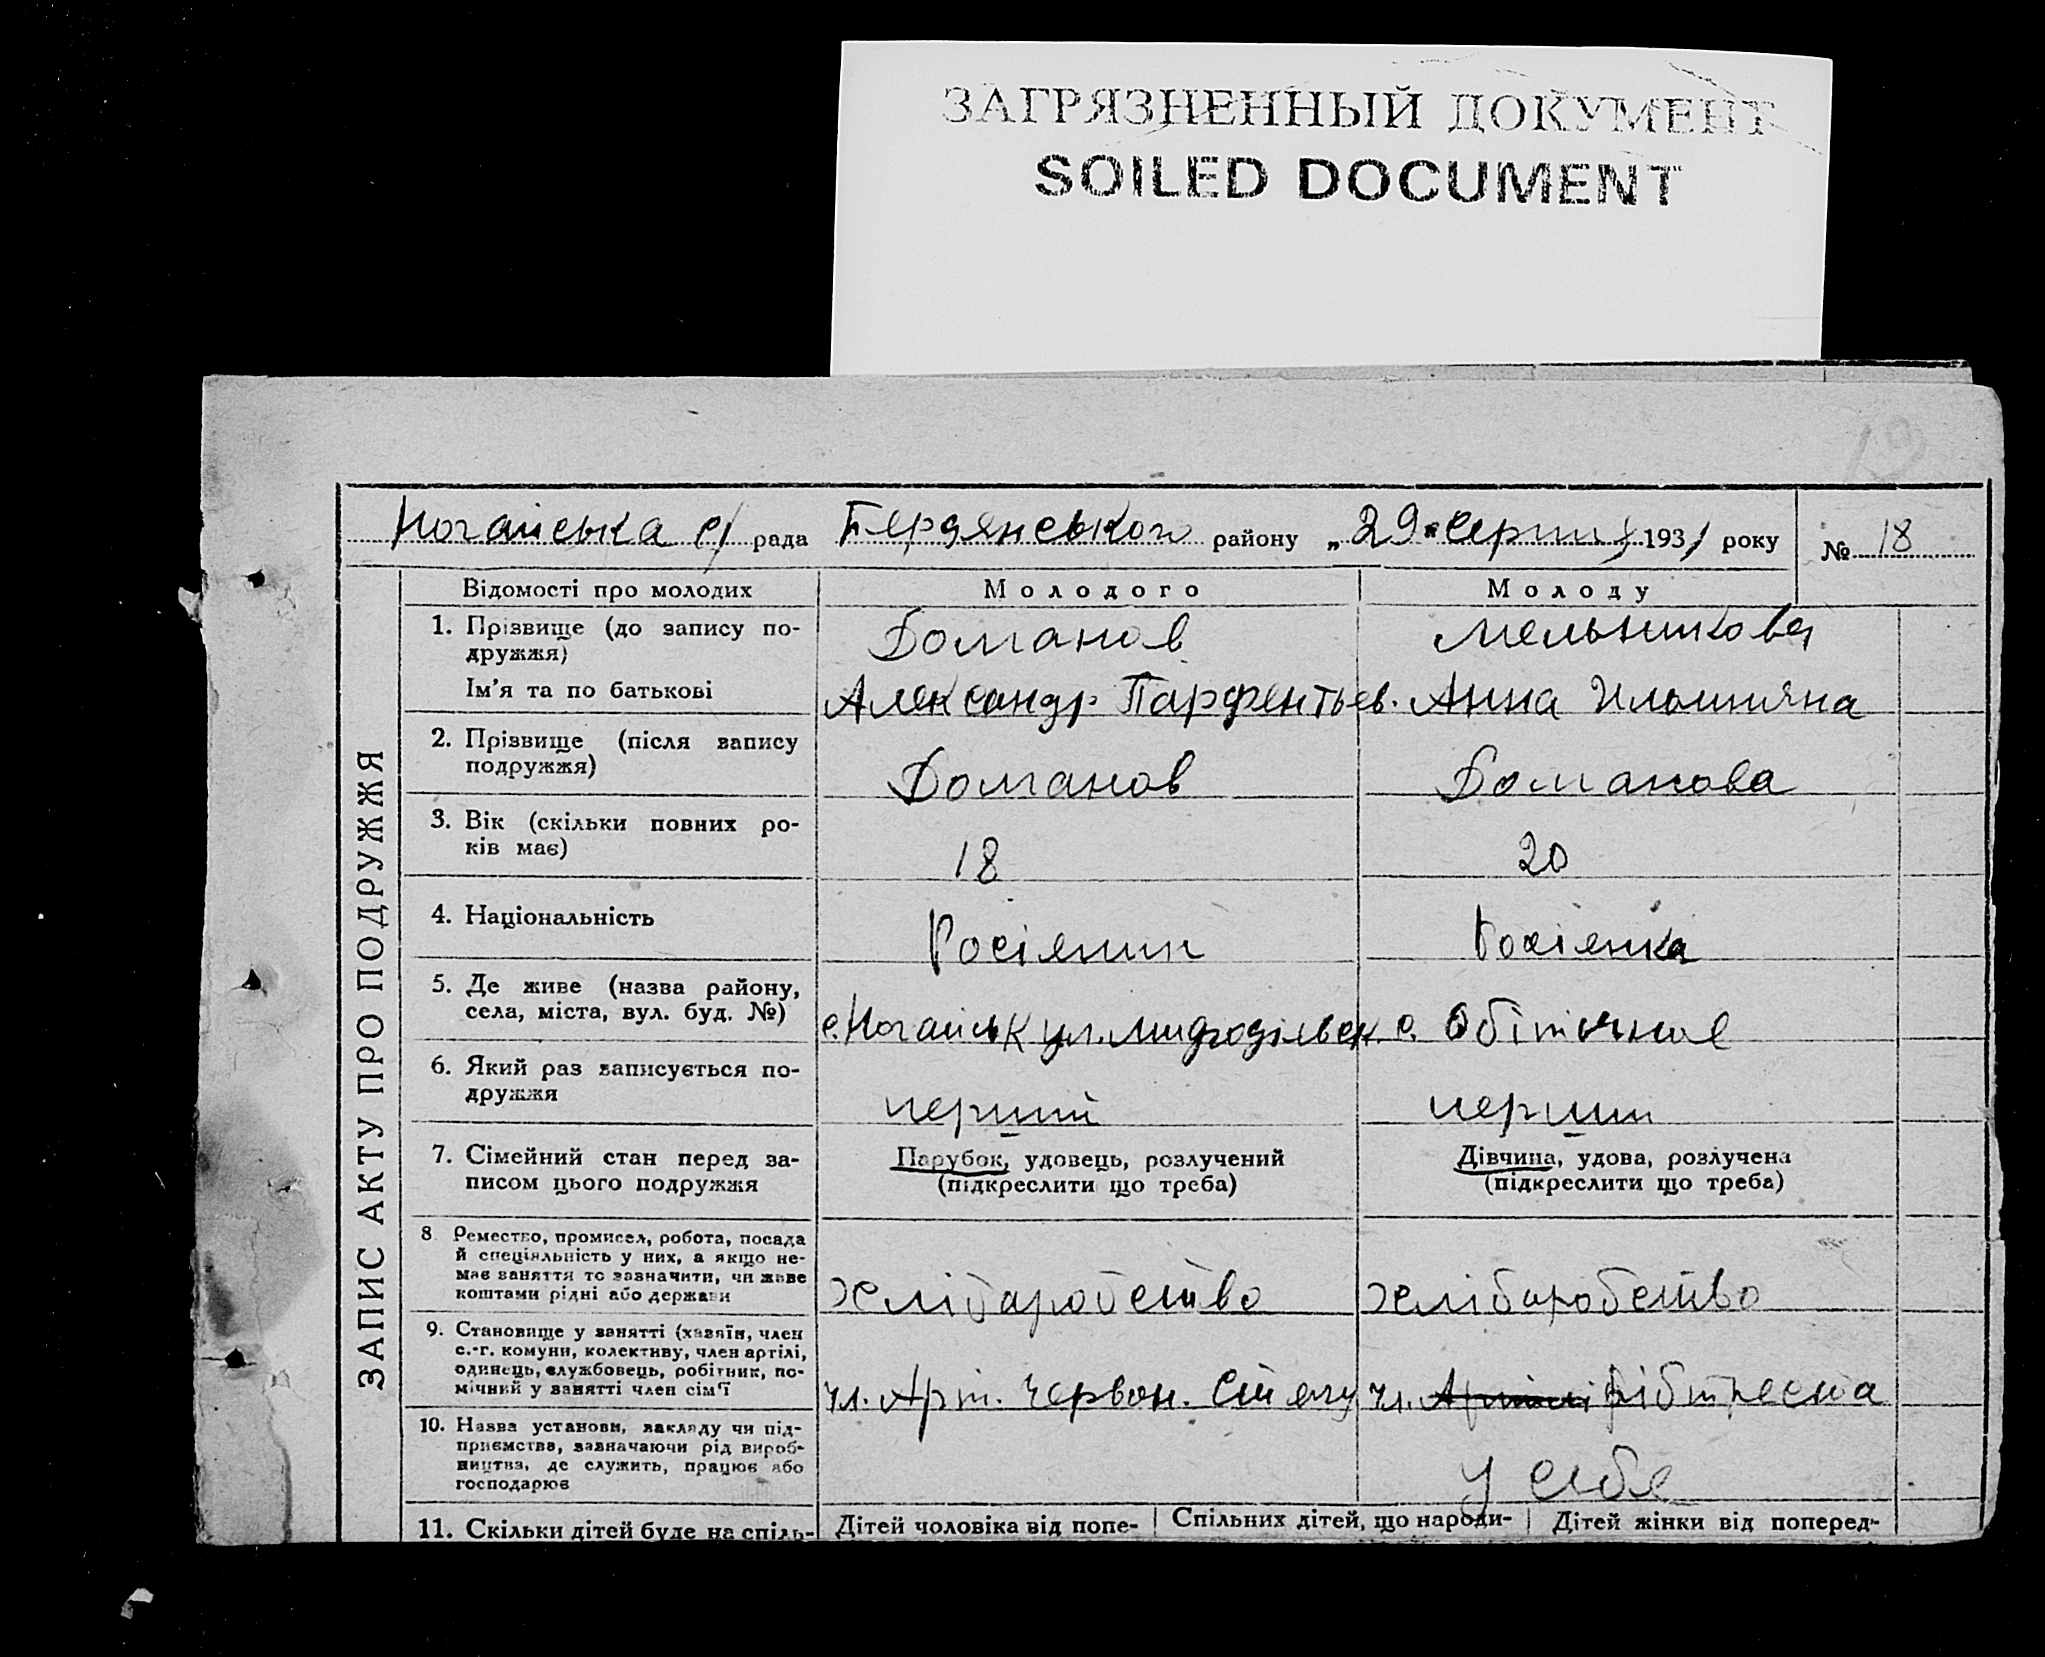 ЗАГРЯЗНЕННЫЙ ДОКУМЕНТ
SOILED DOCUMENT
19
Ногайська с/ рада Бердянського району „29" серпня 1931 року № 18
ЗАПИС АКТУ ПРО ПОДРУЖЖЯ
Відомості про молодих Молодого Молоду
1. Прізвище (до запису по-
дружжя) Долганов Мельникова
Ім'я та по батькові Александр Парфентьев. Анна Ильинична
2. Прізвище (після запису
подружжя) Долганов Долганова
3. Вік (скільки повних ро-
ків має) 18 20
4. Національність Росіянин Росіянка
5. Де живе (назва району,
села, міста, вул. буд. №) с. Ногайськ ул. с. Обіточное
6. Який раз записується по-
дружжя перший перший
7. Сімейний стан перед за-
писом цього подружжя
Парубок, удовець, розлучений
(підкреслити що треба)
Дівчина, удова, розлучена
(підкреслити що треба)
8. Ремество, промисел, робота, посада
й спеціяльність у них, а якщо не-
має заняття то зазначити, чи живе
коштами рідні або держави хліборобство хліборобство
9. Становище у занятті (хазяїн, член
с.-г. комуни, колективу, член артілі,
одинець, службовець, робітник, по-
мічний у занятті член сім'ї чл. Арт. Червон. Стягу чл. Артілі рібтреста
10. Назва установи, закладу чи під-
приємства, зазначаючи рід вироб-
ництва, де служить, працює або
господарює у себя
11. Скільки дітей буде на спіль-
Дітей чоловіка від попе-
Спільних дітей, що народи-
Дітей жінки від поперед-